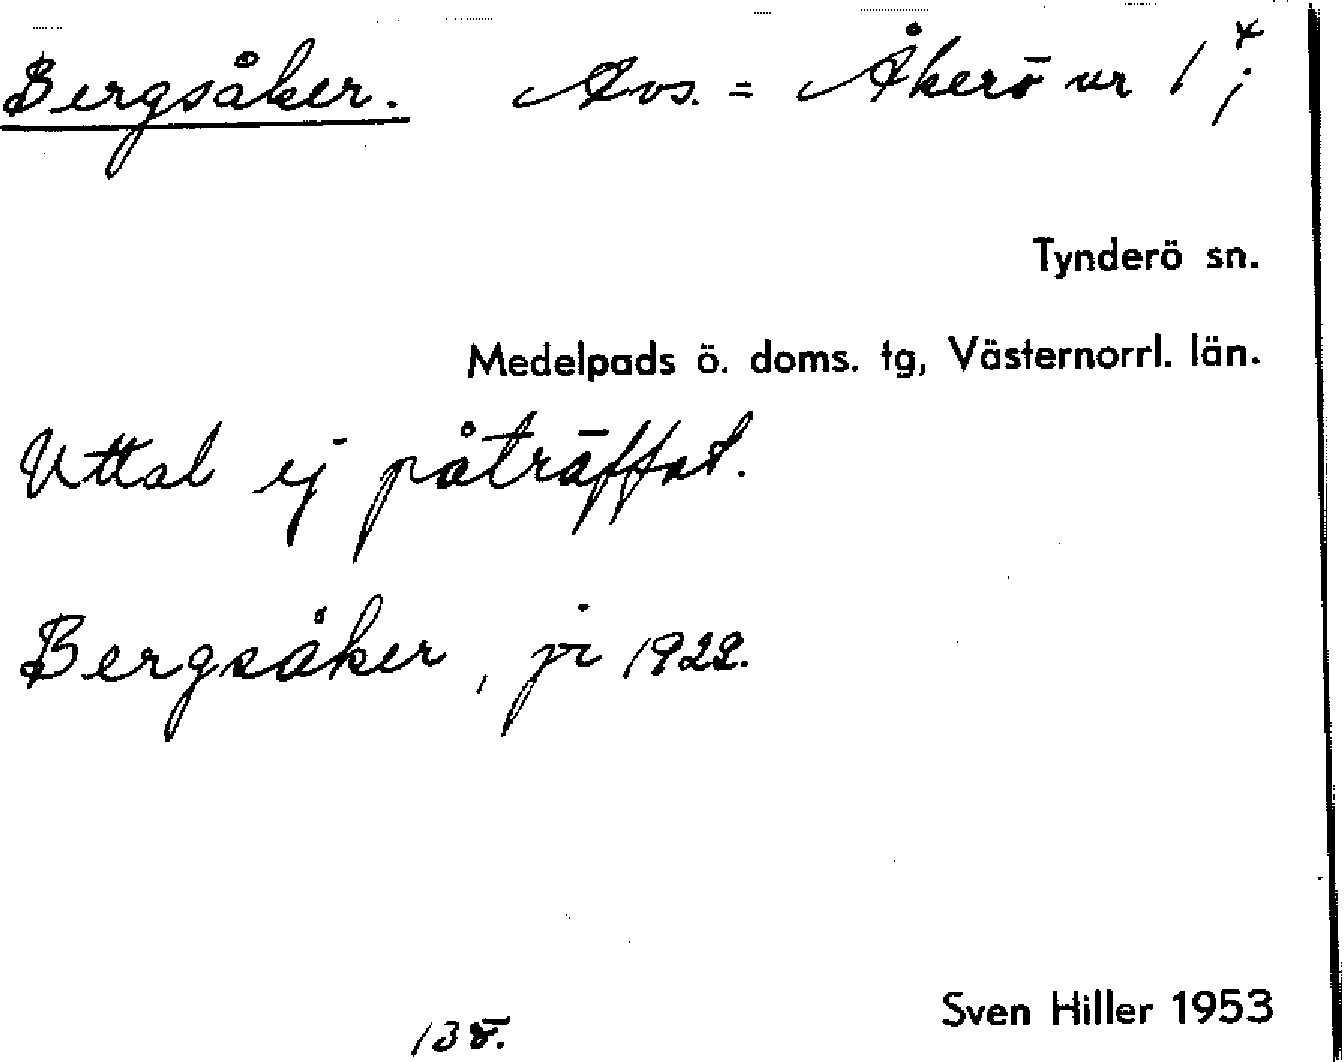 Bergsåker. Avs. = Åkerö nr 1 4/;
Tynderö sn.
Medelpads ö. doms. tg, Västernorrl. län.
Uttal ej påträffat.
Bergsåker, jr 1922.
Sven Hiller 1953
138.